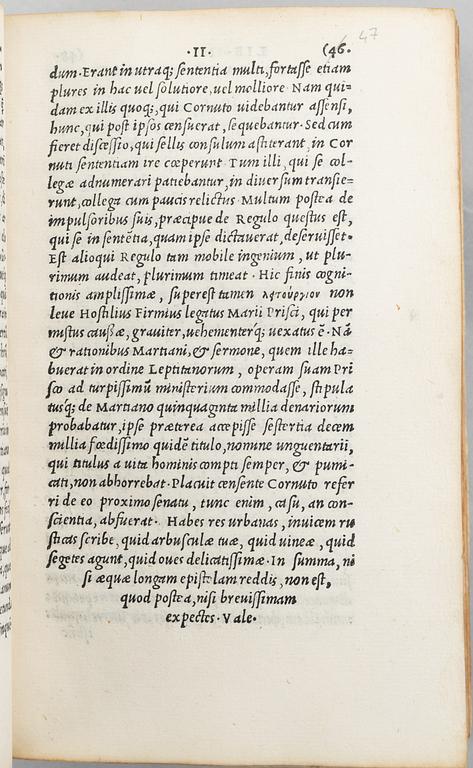 47
·II· (46·
dum·Erant in utraq; sententia multi, fortasse etiam
plures in hac uel solutiore, uel molliore· Nam qui=
dam ex illis quoq;, qui Cornuto uidebantur assensi,
hunc, qui post ipsos censuerat, sequebantur· Sed cum
fieret discessio, qui sellis consulum astiterant, in Cor
nuti sententiam ire cœperunt· Tum illi, qui se col-
legæ adnumerari patiebantur, in diuersum transie=
runt, collega cum paucis relictus· Multum postea de
impulsoribus suis, præcipue de Regulo questus est,
qui se in sentētia, quam ipse dictauerat, deseruisset·
Est alioqui Regulo tam mobile ingenium, ut plu-
rimum audeat, plurimum timeat· Hic finis cogni-
tionis amplissimæ, superest tamen λητούργιον non
leue Hostilius Firmius legatus Marii Prisci, qui per
mistus caussæ, grauiter, uehementerq; uexatus ē· Nā
& rationibus Martiani, & sermone, quem ille ha=
buerat in ordine Leptitanorum, operam suam Pri
sco ad turpissimū ministerium commodasse, stipula
tusq; de Martiano quinquaginta millia denariorum
probabatur, ipse præterea accepisse sestertia decem
millia fœdissimo quidē titulo, nomine unguentarii,
qui titulus a uita hominis compti semper, & pumi-
cati, non abhorrebat· Placuit censente Cornuto refer
ri de eo proximo senatu, tunc enim, casu, an con-
scientia, abfuerat· Habes res urbanas, inuicem ru
sticas scribe, quid arbusculæ tuæ, quid uineæ, quid
segetes agunt, quid oues delicatissimæ· In summa, ni
si æquæ longam epistolam reddis, non est,
quod postea, nisi breuissimam
expectes· Vale·